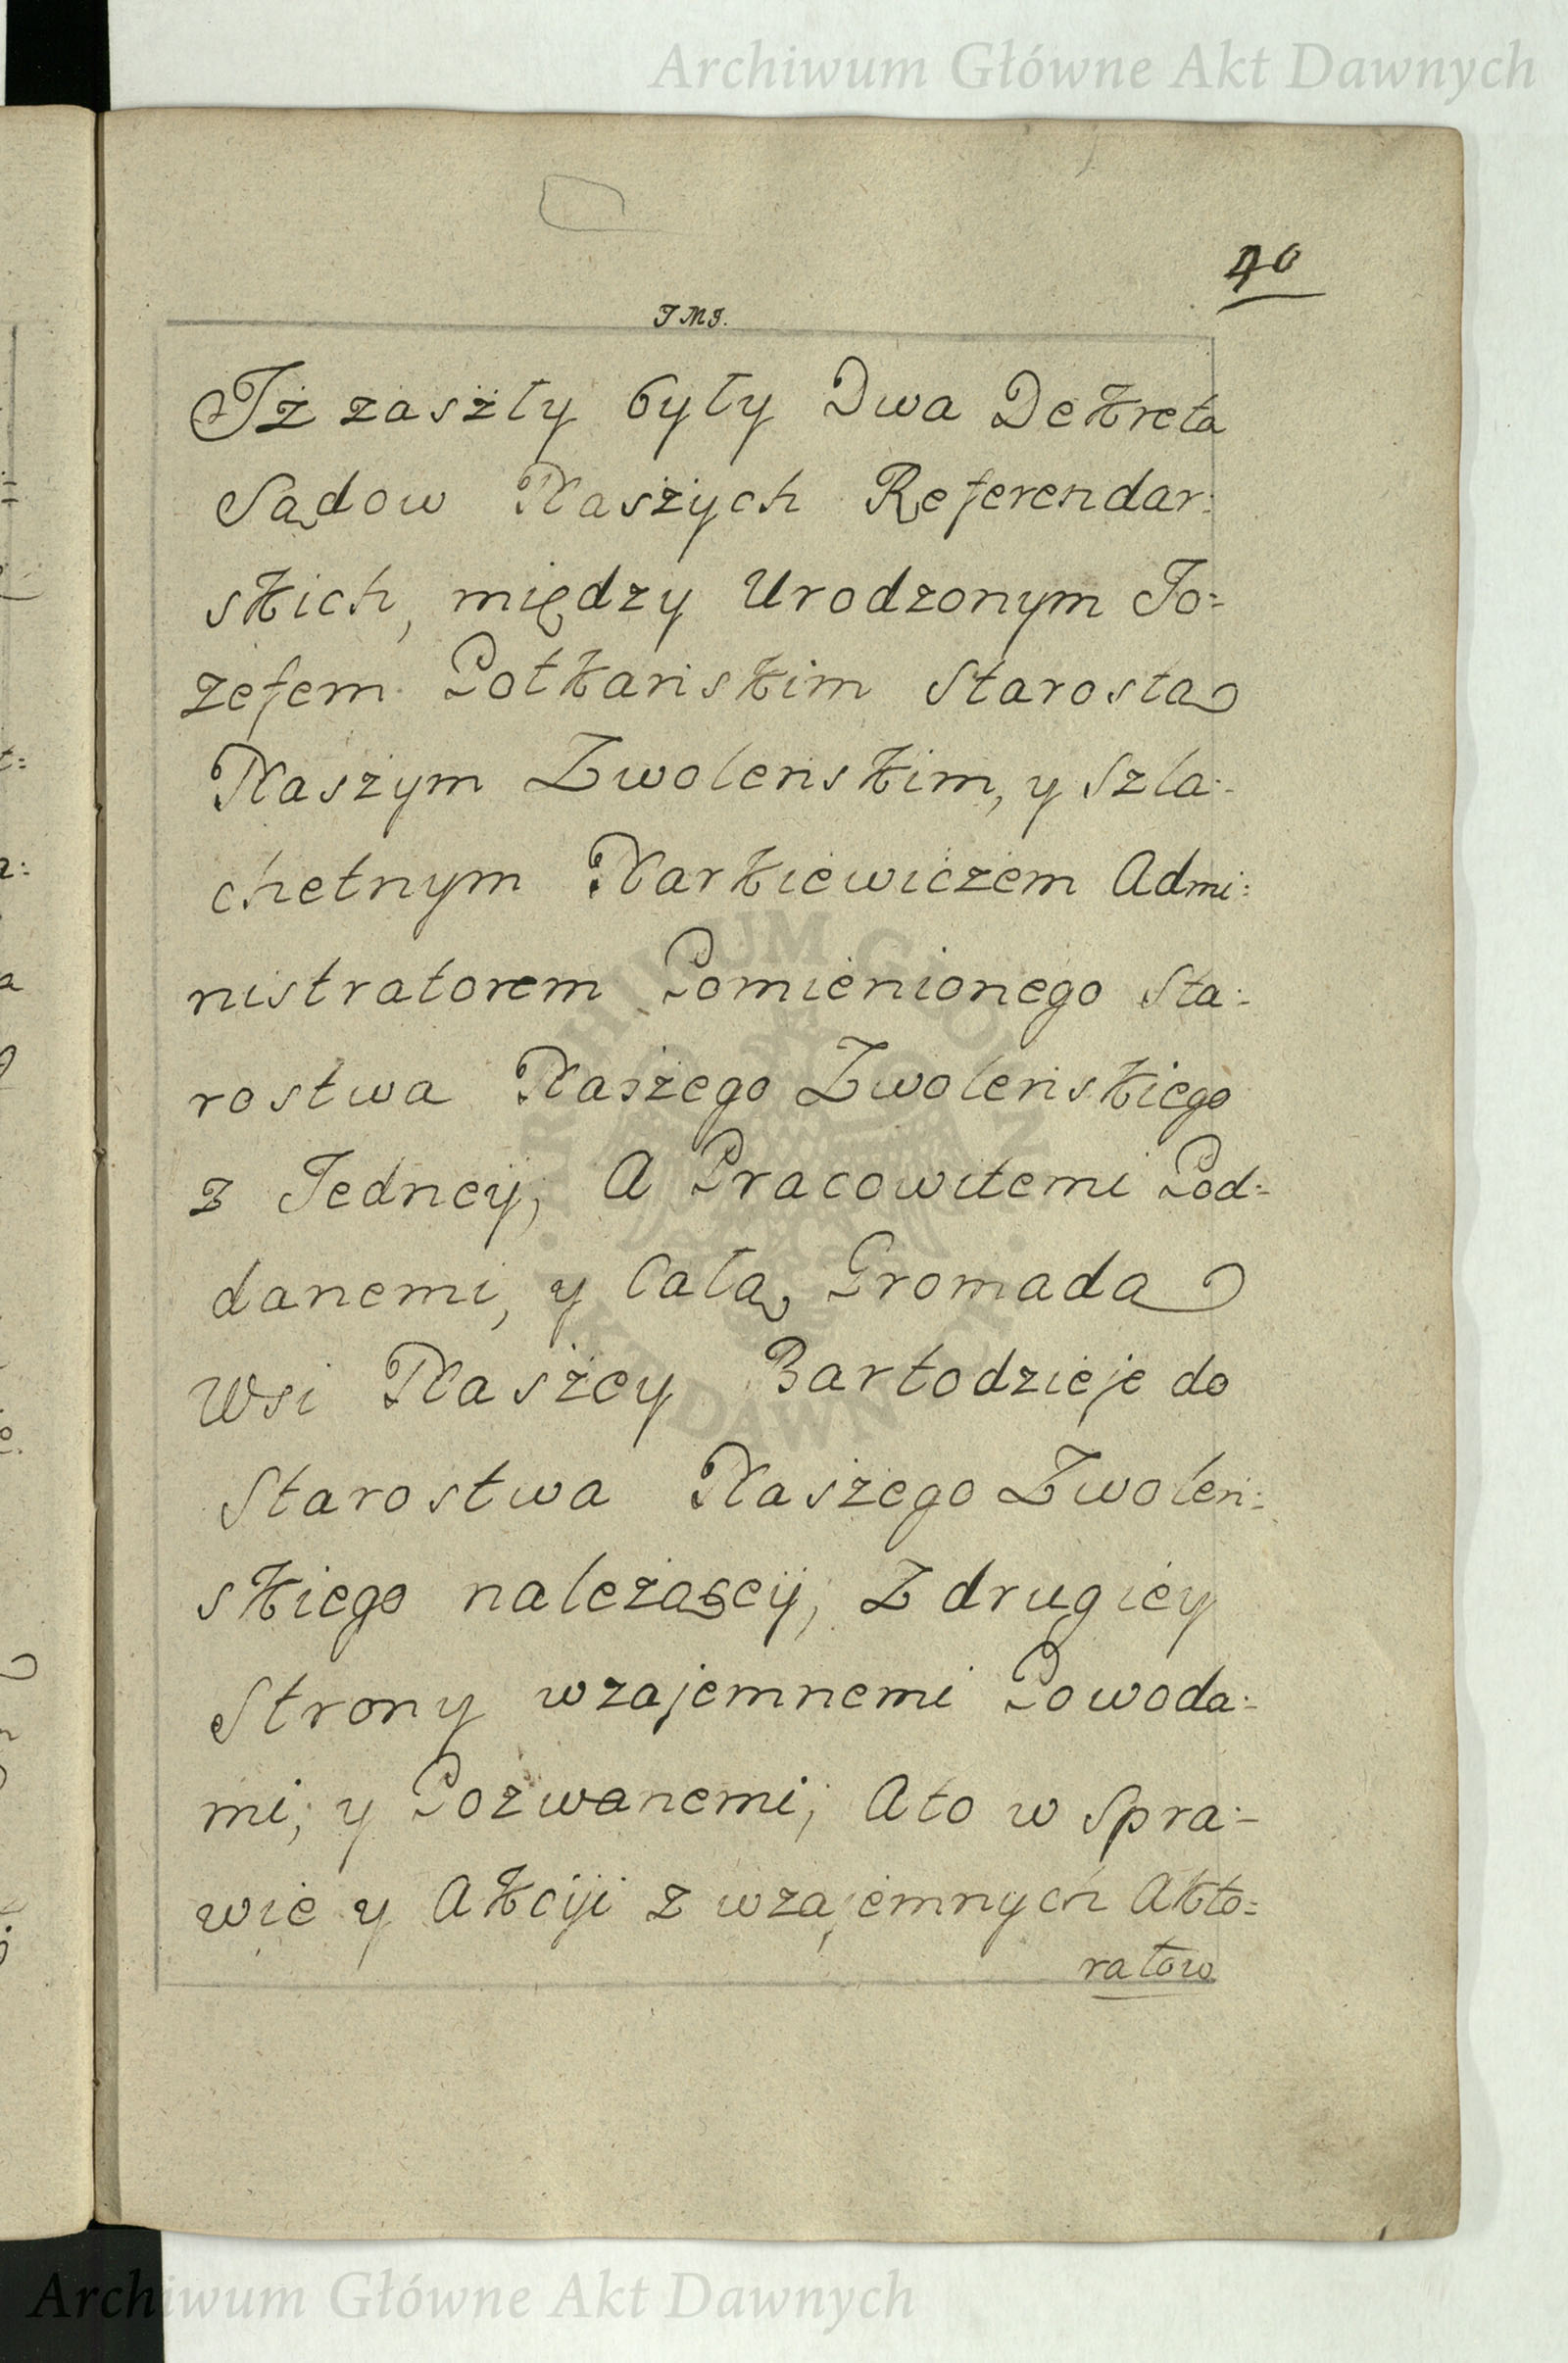 Archiwum Główne Akt Dawnych
40
J M J.
Jż zaszły były Dwa Dekreta
Sądow Naszych Referendar:
skich, między Urodzonym Jo=
zefem Potkańskim Starostą
Naszym Zwoleńskim, y Szla:
chetnym Narkiewiczem Admi:
nistratorem Pomienionego Sta:
rostwa Naszego Zwoleńskiego
z Jedney, A Pracowitemi Pod=
danemi, y Całą Gromadą
Wsi Naszey Bartodzieje do
Starostwa Naszego Zwoleń:
skiego należącey, Z drugiey
Strony wzajemnemi Powoda:
mi, y Pozwanemi, A to w Spra:
wie y Akcyi z wzajemnych Akto=
ratow
ARCHIWUM GŁÓWNE AKT DAWNYCH
Archiwum Główne Akt Dawnych